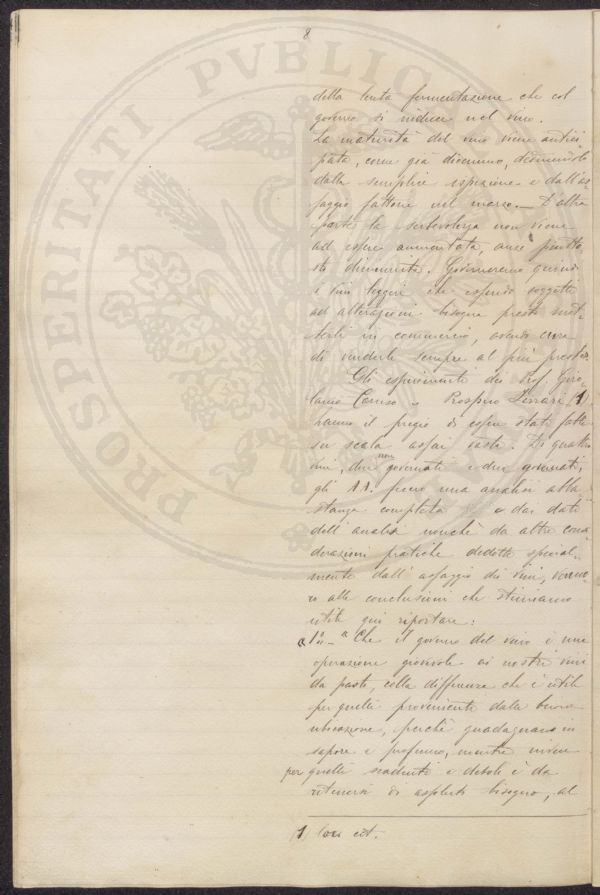 8
della lenta fermentazione che col
governo si induce nel vino.
La maturità del vino viene antici
pata, come già dicemmo, desumendolo
dalla semplice ispezione e dall'as
saggio fattone nel marzo. — D'altra
parte la serbevolezza non viene
ad essere aumentata, anzi piutto
sto diminuita. Governeremo quindi
i vini leggeri che essendo soggetti
ad alterazioni bisogna presto met-
terli in commercio, avendo cura
di venderli sempre al più presto.
Gli esperimenti dei Prof. Giro
lamo Caruso e Prospero Ferrari (1)
hanno il pregio di essere stati fatti
su scala assai vasta. Di quattro
vini, due non governati e due governati,
gli AA. fecero una analisi abba
stanza completa e dai dati
dell'analisi nonchè da altre consi
derazioni pratiche dedotte special-
mente dall'assaggio dei vini, venne-
ro alle conclusioni che stimiamo
utile qui riportare:
"1º — "Che il governo del vino è una
operazione giovevole ai nostri vini
da pasto, colla differenza che è utile
per quelli provenienti dalle buone
ubicazione, perchè guadagnano in
sapore e profumo, mentre invece
per quelli scadenti e deboli è da
ritenersi di assoluto bisogno, al
(1) loco cit.
PROSPERITATI PVBLIC